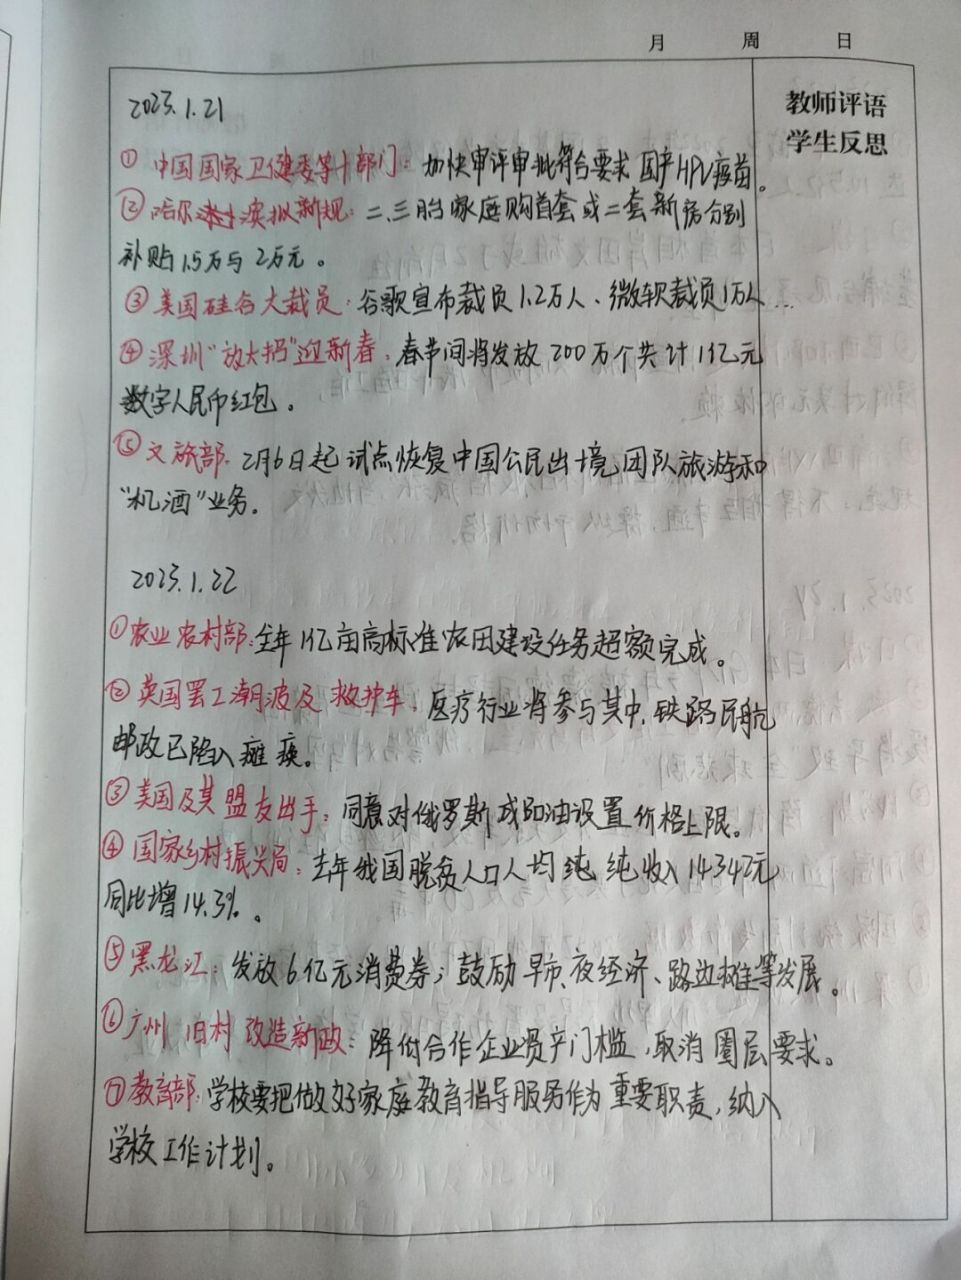 月 周 日
教师评语
学生反思
2023.1.21
①中国国家卫健委等十部门：加快审评审批符合要求国产HPV疫苗。
②哈尔滨拟新规：二、三胎家庭购首套或二套新房分别
补贴1.5万与2万元。
③美国硅谷大裁员：谷歌宣布裁员1.2万人、微软裁员1万人…
④深圳“放大招”迎新春：春节间将发放200万个共计1亿元
数字人民币红包。
⑤文旅部：2月6日起试点恢复中国公民出境团队旅游和
“机酒”业务。
2023.1.22
①农业农村部：全年1亿亩高标准农田建设任务超额完成。
②英国罢工潮波及救护车：医疗行业将参与其中，铁路民航
邮政已陷入瘫痪。
③美国及其盟友出手：同意对俄罗斯成品油设置价格上限。
④国家乡村振兴局：去年我国脱贫人口人均纯纯收入14342元
同比增14.3%。
⑤黑龙江：发放6亿元消费券；鼓励早市、夜经济、路边摊等发展。
⑥广州旧村改造新政：降低合作企业资产门槛，取消圈层要求。
⑦教育部：学校要把做好家庭教育指导服务作为重要职责，纳入
学校工作计划。